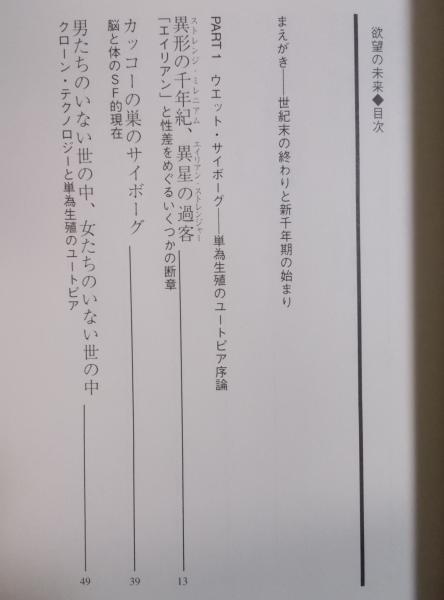 欲望の未来◆目次
まえがき──世紀末の終わりと新千年期の始まり
PART 1 ウエット・サイボーグ──単為生殖のユートピア序論
ストレンジ・ミレニアム エイリアン・ストレンジャー
異形の千年紀、異星の過客 13
「エイリアン」と性差をめぐるいくつかの断章
カッコーの巣のサイボーグ 39
脳と体のSF的現在
男たちのいない世の中、女たちのいない世の中 49
クローン・テクノロジーと単為生殖のユートピア